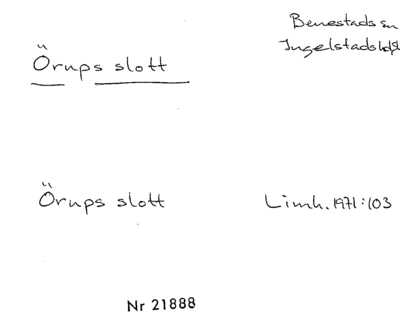 Benestads sn
Ingelstads hd
Örups slott
Örups slott
Limh. 1971:103
Nr 21888